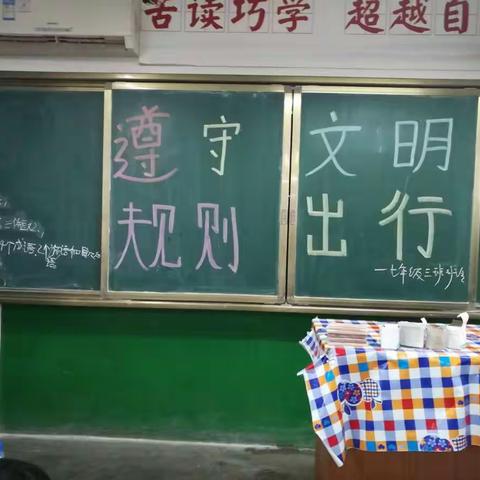 苦读巧学 超越自
遵守 文明
规则 出行
一七年级三班